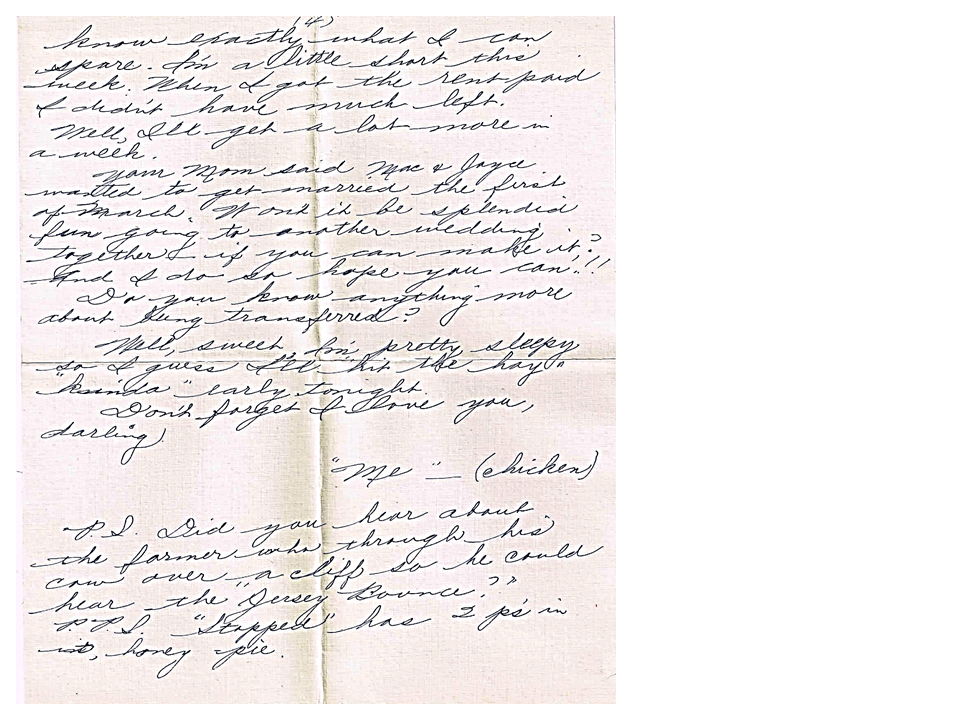 (4)
know exactly what I can
spare. I'm a little short this
week. When I got the rent paid
I didn't have much left.
Well, I'll get a lot more in
a week.
Your Mom said Mac & Joyce
wanted to get married the first
of March. Won't it be splendid
fun going to another wedding
together & if you can make it,?
And I do so hope you can!!!
Do you know anything more
about being transferred?
Well, sweet, I'm pretty sleepy
so I guess I'll "hit the hay"
"kinda" early tonight.
Don't forget I love you,
darling!
"Me" — (chicken)
P.S. Did you hear about
the farmer who through his
cow over a cliff so he could
hear the "Jersey Bounce?"
P.P.S. "Stopped" has 2 p's in
it, honey-pie.